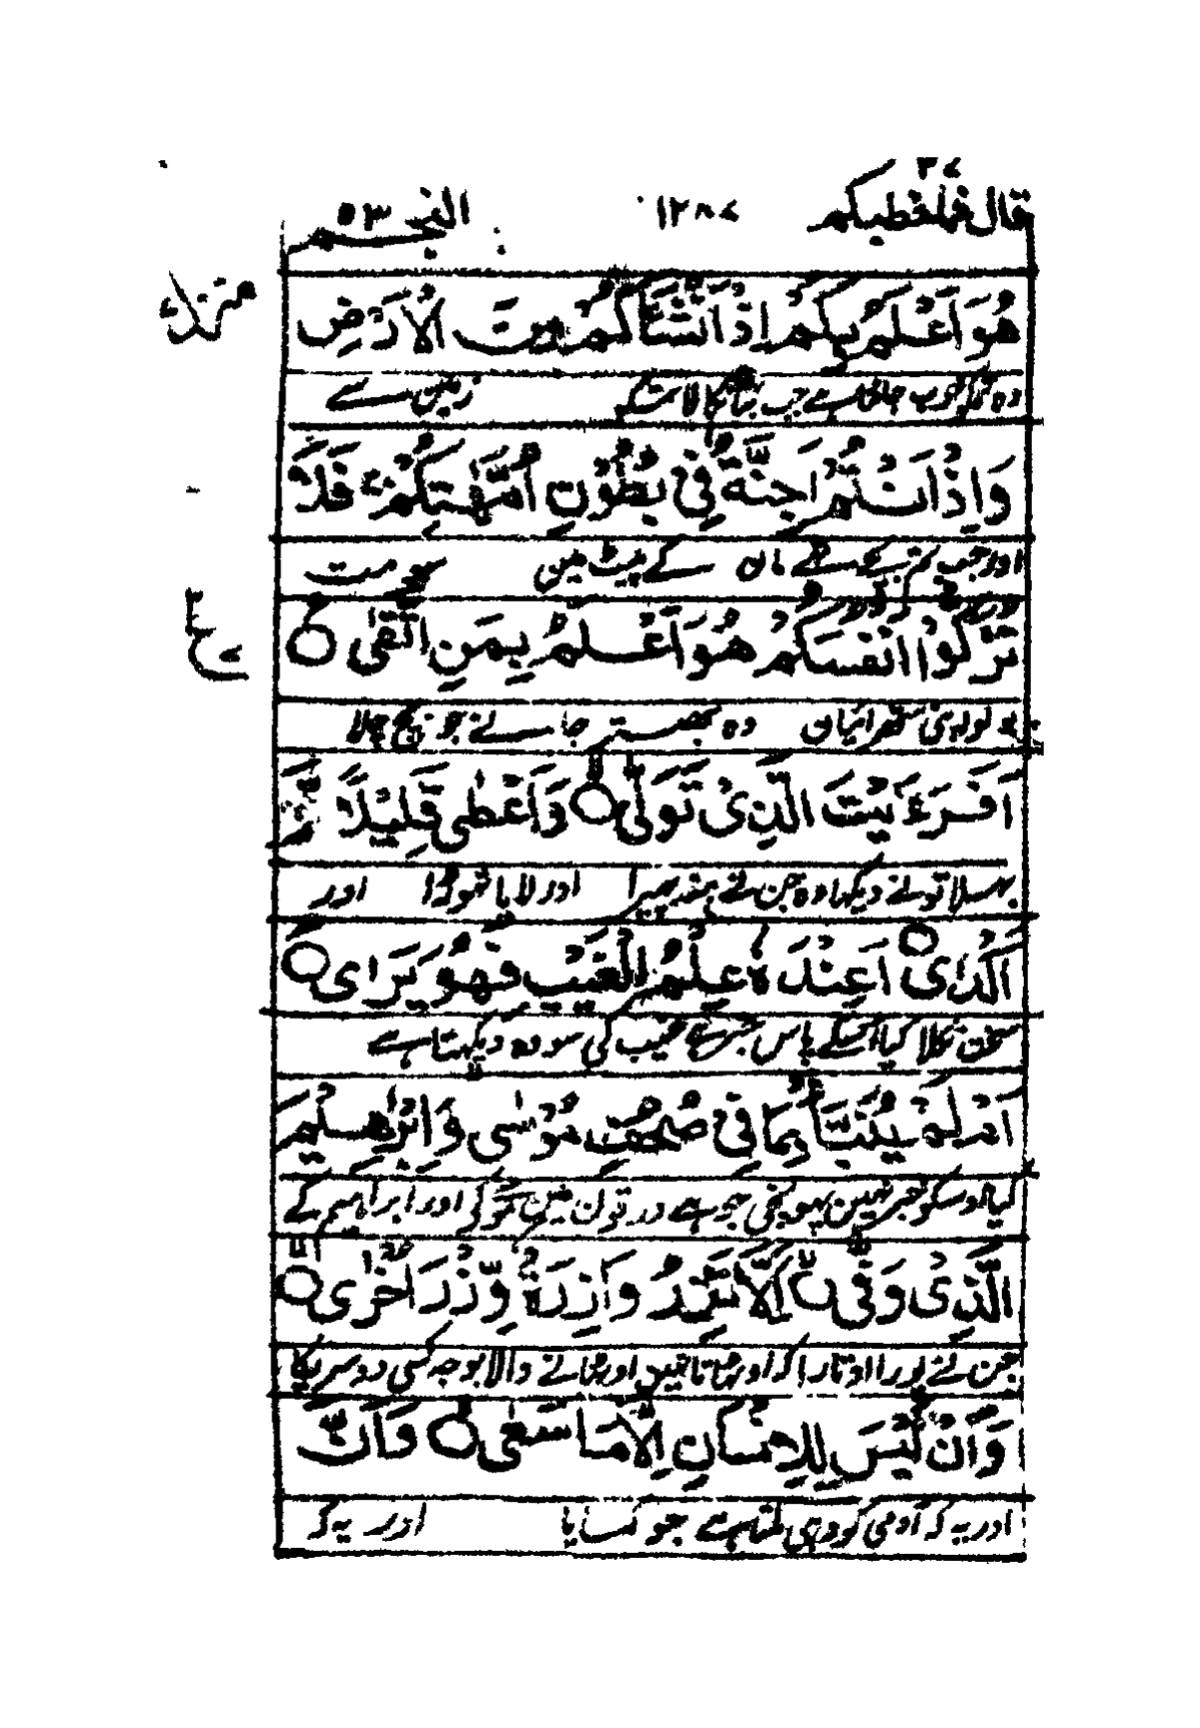 قال فما خطبكم ٢٧
١٢٨٧
النجم ٥٣
هُوَ اَعْلَمُ بِكُمْ اِذْ اَنْشَاَكُمْ مِنَ الْاَرْضِ
وہ خوب جانتا ہے جب بنا نکالا تمکو زمین سے
وَاِذْ اَنْتُمْ اَجِنَّةٌ فِيْ بُطُوْنِ اُمَّهٰتِكُمْ فَلَا
اور جب تم بچے تھے ماں کے پیٹ میں سو مت
تُزَكُّوْا اَنْفُسَكُمْ هُوَ اَعْلَمُ بِمَنِ اتَّقٰى
بولو اپنی ستھرائیاں وہ بہتر جانے جو بچ چلا
اَفَرَءَيْتَ الَّذِيْ تَوَلّٰى وَاَعْطٰى قَلِيْلًا وَّ
بھلا تو نے دیکھا وہ جن نے منہ پھیرا اور لایا تھوڑا اور
اَكْدٰى اَعِنْدَهٗ عِلْمُ الْغَيْبِ فَهُوَ يَرٰى
سخت نکلا کیا اسکے پاس خبر ہے غیب کی سو وہ دیکھتا ہے
اَمْ لَمْ يُنَبَّاْ بِمَا فِيْ صُحُفِ مُوْسٰى وَاِبْرٰهِيْمَ
کیا اوسکو خبر نہیں پہونچی جو ہے ورقوں میں موسی کے اور ابراہیم کے
الَّذِيْ وَفّٰى اَلَّا تَزِرُ وَازِرَةٌ وِّزْرَ اُخْرٰى
جن نے پورا اوتارا کہ اوٹھاتا نہیں اوٹھانے والا بوجھ کسی دوسریکا
وَاَنْ لَيْسَ لِلْاِنْسَانِ اِلَّا مَا سَعٰى وَاَنَّ
اور یہ کہ آدمی کو وہی ملتا ہے جو کمایا اور یہ کہ